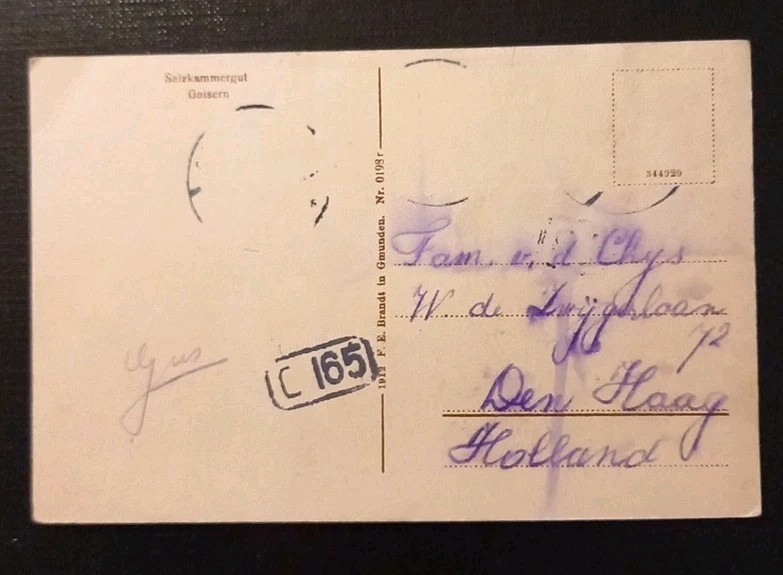 Salzkammergut
Goisern
1912 F. E. Brandt in Gmunden. Nr. 0198 r
344920
Fam. v. d. Chys
W. de Zwijgerlaan
72
Den Haag
Holland
C 165